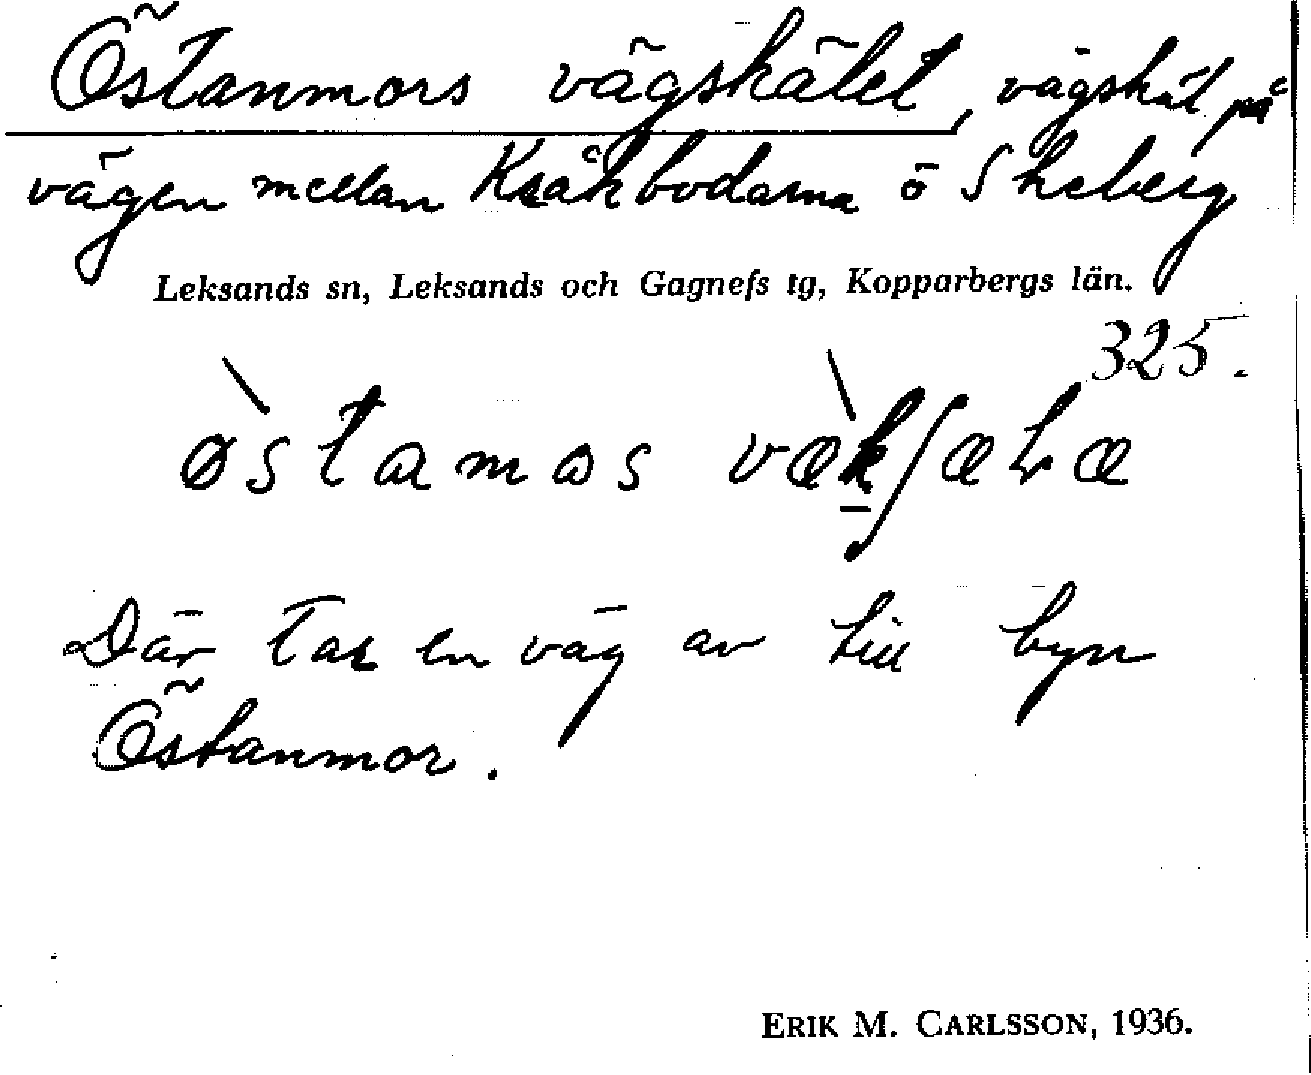 Östanmors vägskälet, vägskäl på
vägen mellan Kråkbodarna o Skeberg
Leksands sn, Leksands och Gagnefs tg, Kopparbergs län.
325.
Där tar en väg av till byn
Östanmor.
ERIK M. CARLSSON, 1936.